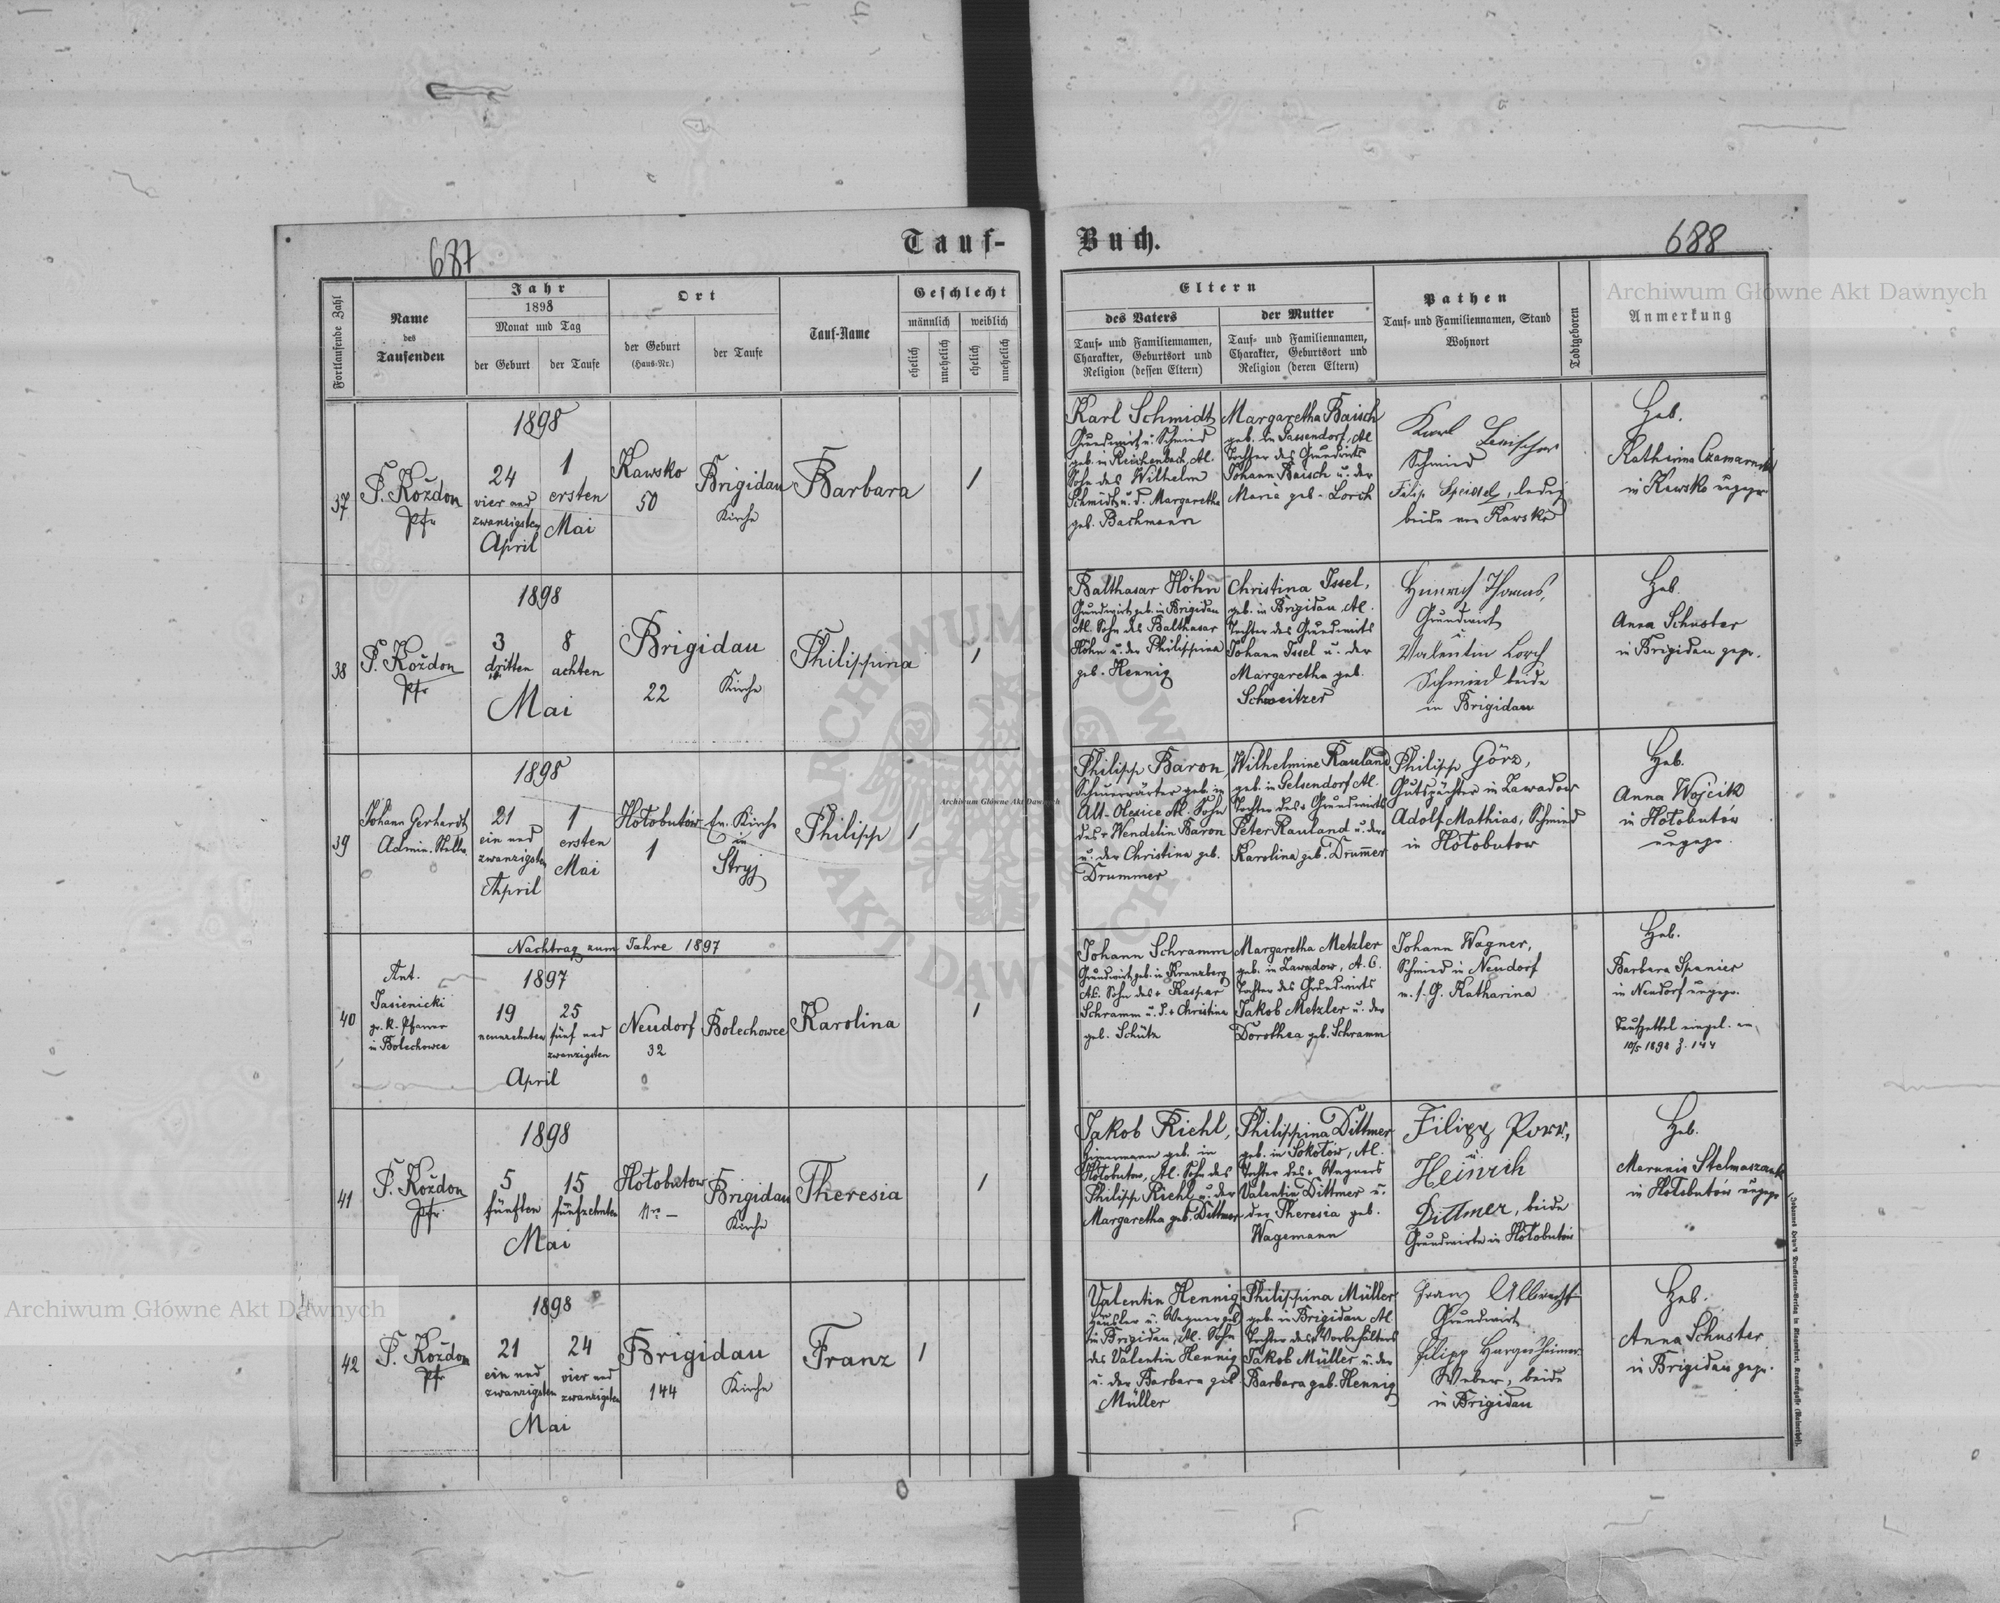 687
Tauf-
Buch.
688
Archiwum Główne Akt Dawnych
Fortlaufende Zahl
Name
des
Taufenden
Jahr
1898
Monat und Tag
der Geburt
der Taufe
Ort
der Geburt
(Haus-Nr.)
der Taufe
Tauf-Name
Geschlecht
männlich
weiblich
ehelich
unehelich
ehelich
unehelich
Eltern
des Vaters
Tauf- und Familiennamen,
Charakter, Geburtsort und
Religion (dessen Eltern)
der Mutter
Tauf- und Familiennamen,
Charakter, Geburtsort und
Religion (deren Eltern)
Pathen
Tauf- und Familiennamen, Stand
Wohnort
Todtgeboren
Anmerkung
37
P. Koždon
Pfr
1898
24
vier und
zwanzigsten
April
1
ersten
Mai
Kawsko
50
Brigidau
Kirche
Barbara
1
Karl Schmidt
Grundwirt u. Schmied
geb. in Reichenbach, Al.
Sohn des Wilhelm
Schmidt u. d. Margaretha
geb. Bachmann
Margaretha Baisch
geb. in Sassendorf, Al
Tochter des Grundwirts
Johann Baisch u. der
Maria geb. Lorch
Karl
Schmied
Filip Speissel, ledig
beide von Kawsko
Heb.
Katharina
in Kawsko ungepr
38
P. Koždon
Pfr
1898
3
dritten
8
achten
Mai
Brigidau
22
Kirche
Philippina
1
Balthasar Höhn
Grundwirt geb. in Brigidau
Al. Sohn des Balthasar
Höhn u. der Philippina
geb. Hennig
Christina Issel,
geb. in Brigidau, Al.
Tochter des Grundwirts
Johann Issel u. der
Margaretha geb.
Schweitzer
Heinrich Thomas,
Grundwirt
u.
Valentin Lorch
Schmied beide
in Brigidau
Heb.
Anna Schuster
in Brigidau gepr.
39
Johann Gerhardt
Admin. Stellv
1898
21
ein und
zwanzigsten
April
1
ersten
Mai
Hołobutów
1
Ev. Kirche
in
Stryj
Philipp
1
Philipp Baron,
geb. in
Alt-Olesice Al. Sohn
des + Wendelin Baron
u. der Christina geb.
Drummer
Wilhelmine Rauland
geb. in Gelsendorf Al.
Tochter des + Grundwirts
Peter Rauland u. der
Karolina geb. Drummer
Philipp Görz,
Gutspächter in Zawadow
Adolf Mathias, Schmied
in Hołobutow
Heb.
Anna Wojcik
in Hołobutów
ungepr.
Archiwum Główne Akt Dawnych
Nachtrag zum Jahre 1897
40
Ant.
Jasienicki
gr. k. Pfarrer
in Bolechowce
1897
19
neunzehnten
25
fünf und
zwanzigsten
April
Neudorf
32
Bolechowce
Karolina
1
Johann Schramm
Grundwirt geb. in Kranzberg
Al. Sohn des + Kaspar
Schramm u. d. + Christina
geb. Schütz
Margaretha Metzler
geb. in Zawadow, A. C.
Tochter des Grundwirts
Jakob Metzler u. der
Dorothea geb. Schramm
Johann Wagner,
Schmied in Neudorf
m. s. G. Katharina
Heb.
Barbara Spanier
in Neudorf ungepr.
Taufzettel eingel. am
10/5 1898 Z. 144
41
P. Koždon
Pfr.
1898
5
fünften
15
fünfzehnten
Mai
Hołobutow
Nr. —
Brigidau
Kirche
Theresia
1
Jakob Riehl,
Zimmermann geb. in
Hołobutow, Al. Sohn des
Philipp Riehl u. der
Margaretha geb. Dittmer
Philippina Dittmer
geb. in Sokołow, Al.
Tochter des + Wagners
Valentin Dittmer u.
der Theresia geb.
Wagemann
Filipp Porr,
u.
Heinrih
Dittmer, beide
Grundwirte in Hołobutów
Heb.
Marunia
in Hołobutów ungepr
42
P. Koždon
Pfr
1898
21
ein und
zwanzigsten
24
vier und
zwanzigsten
Mai
Brigidau
144
Kirche
Franz
1
Valentin Hennig
Häusler u. Wagner geb.
in Brigidau, Al. Sohn
des Valentin Hennig
u. der Barbara geb
Müller
Philippina Müller
geb. in Brigidau Al
Tochter des + Vorbehälters
Jakob Müller u. der
Barbara geb. Hennig
Franz Albrecht
Grundwirt
Filipp Hargesheimer
Weber, beide
in Brigidau
Heb.
Anna Schuster
in Brigidau gepr.
Archiwum Główne Akt Dawnych
ARCHIWUM GŁÓWNE
AKT DAWNYCH